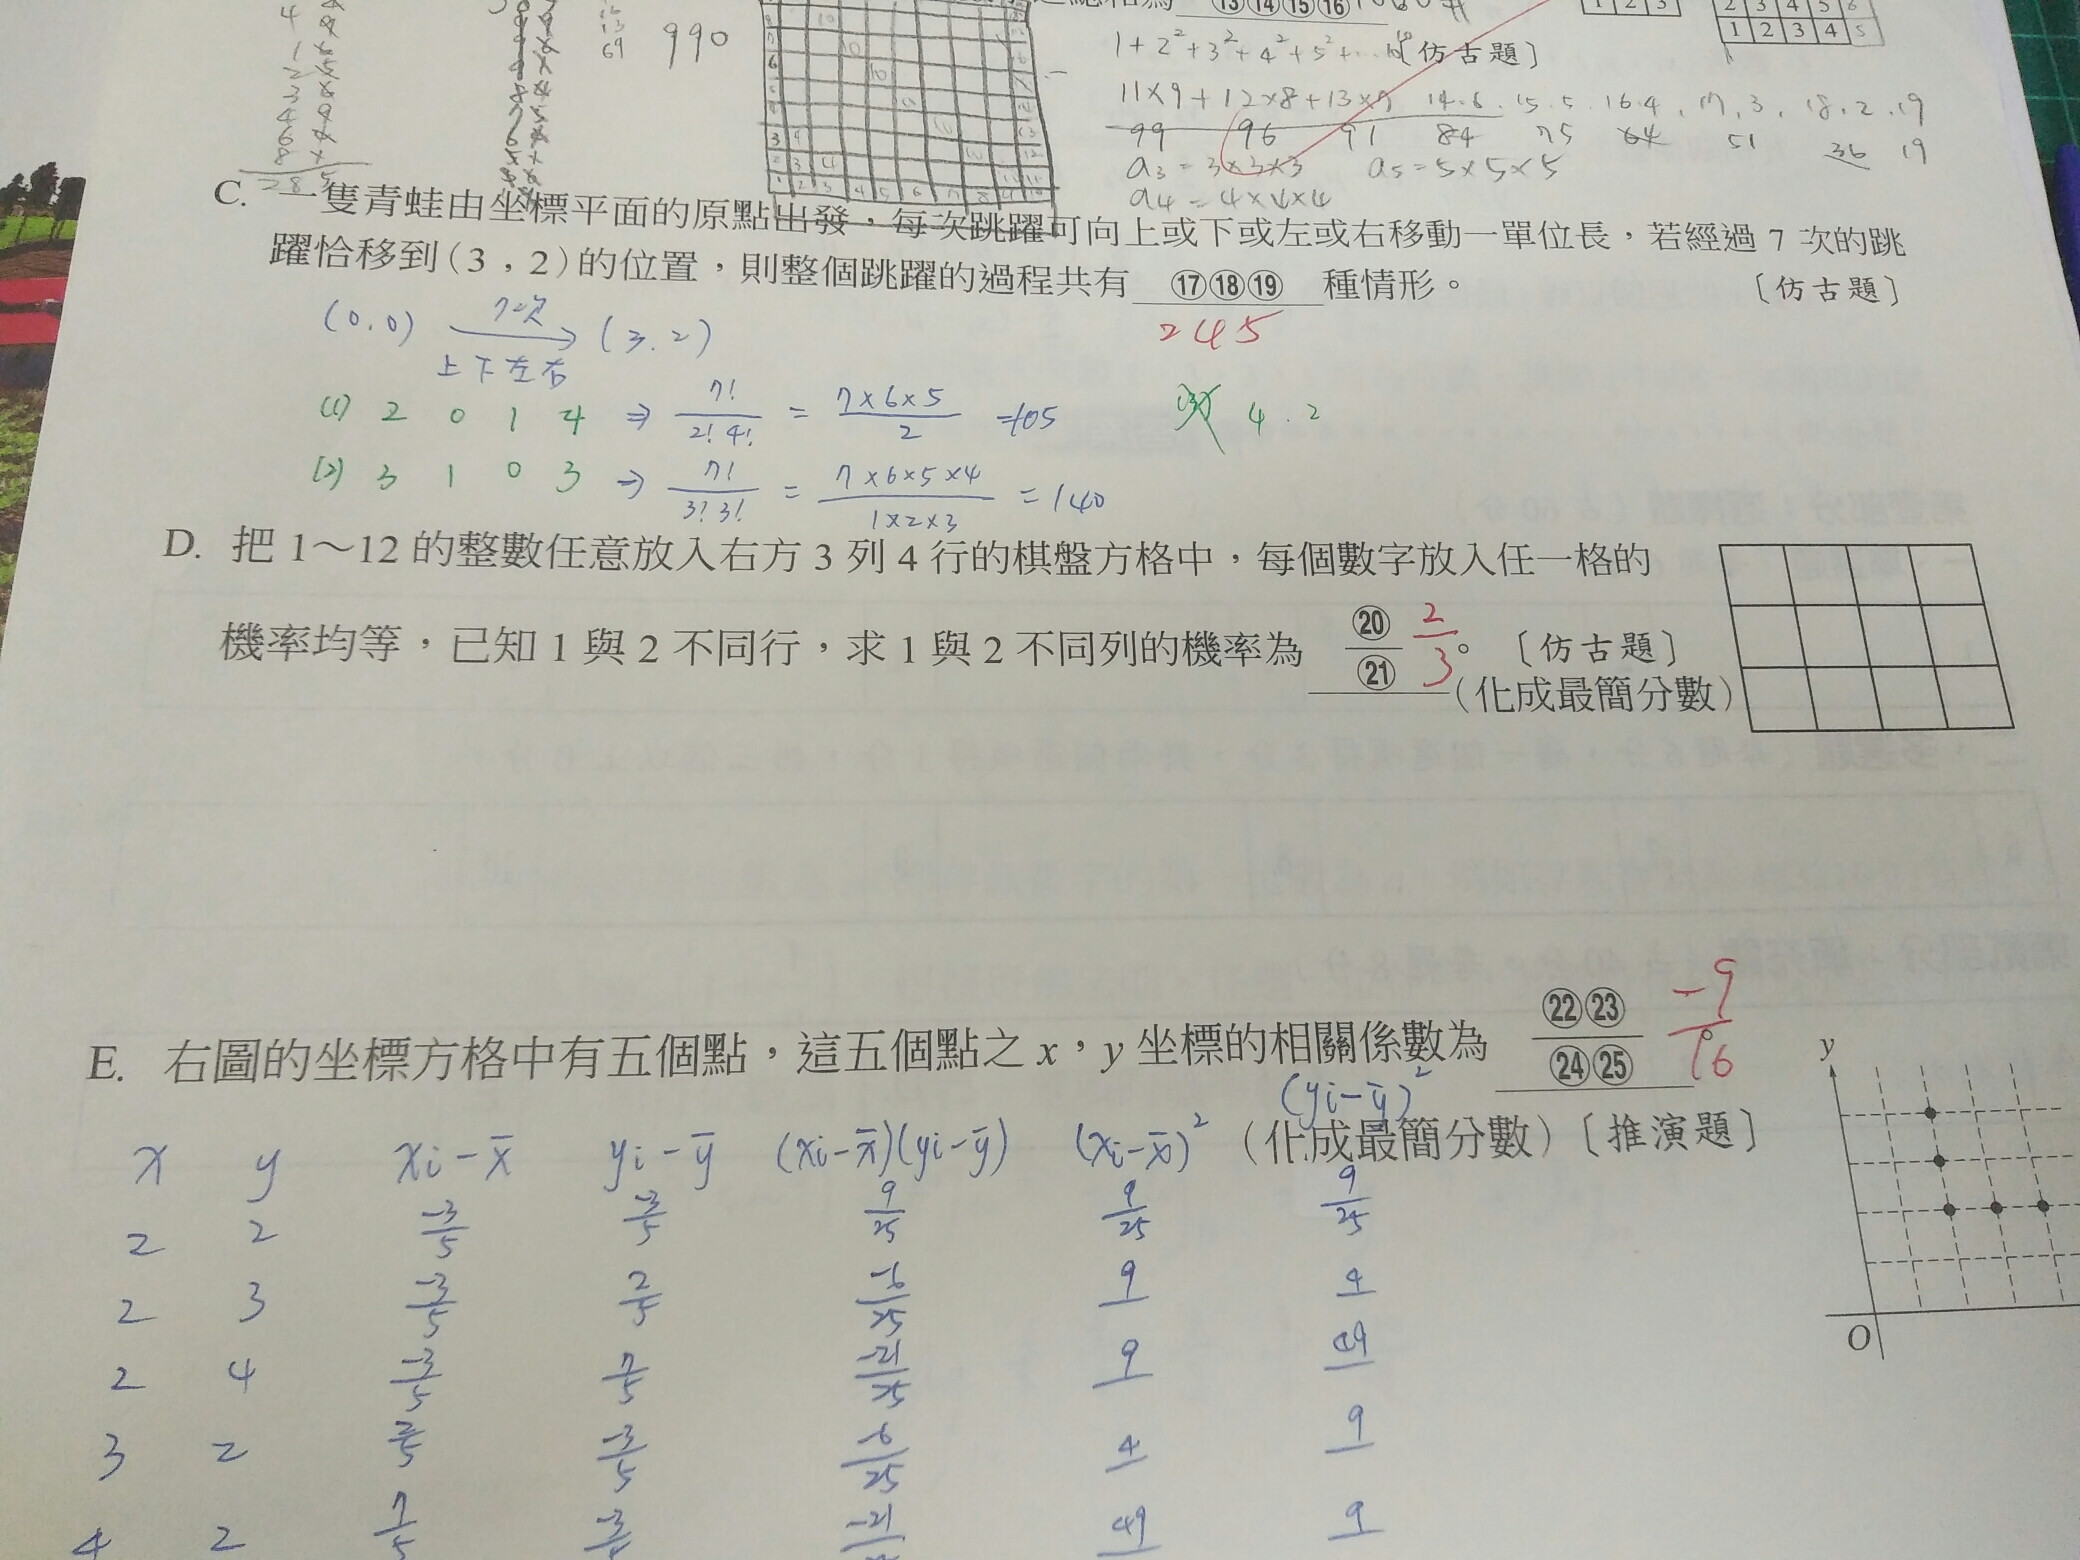 990
⑬⑭⑮⑯
1+2²+3²+4²+5²+… 〔仿古題〕
11×9+12×8+13×7 14.6. 15.5. 16.4, 17.3, 18.2.19
99 96 91 84 75 64 51 36 19
a₃=3×3×3 a₅=5×5×5
a₄=4×4×4
285
1 2 3
2 3 4 5 6
1 2 3 4 5
C. 一隻青蛙由坐標平面的原點出發，每次跳躍可向上或下或左或右移動一單位長，若經過 7 次的跳
躍恰移到(3，2)的位置，則整個跳躍的過程共有 ⑰⑱⑲ 種情形。 〔仿古題〕
245
(0.0) 7次 → (3.2)
上下左右
(1) 2 0 1 4 ⇒ 7!/2!4! = 7×6×5/2 =105
4.2
(2) 3 1 0 3 ⇒ 7!/3!3! = 7×6×5×4/1×2×3 = 140
D. 把 1～12 的整數任意放入右方 3 列 4 行的棋盤方格中，每個數字放入任一格的
機率均等，已知 1 與 2 不同行，求 1 與 2 不同列的機率為 ⑳/㉑ 2/3。〔仿古題〕
(化成最簡分數)
E. 右圖的坐標方格中有五個點，這五個點之 x，y 坐標的相關係數為 ㉒㉓/㉔㉕ -9/16。
(化成最簡分數)〔推演題〕
y
O
x y xi-x̄ yi-ȳ (xi-x̄)(yi-ȳ) (xi-x̄)² (yi-ȳ)²
2 2 -3/5 -3/5 9/25 9/25 9/25
2 3 -3/5 2/5 -6/25 9 4
2 4 -3/5 7/5 -21/25 9 49
3 2 2/5 -3/5 -6/25 4 9
4 2 7/5 -3 -21 49 9